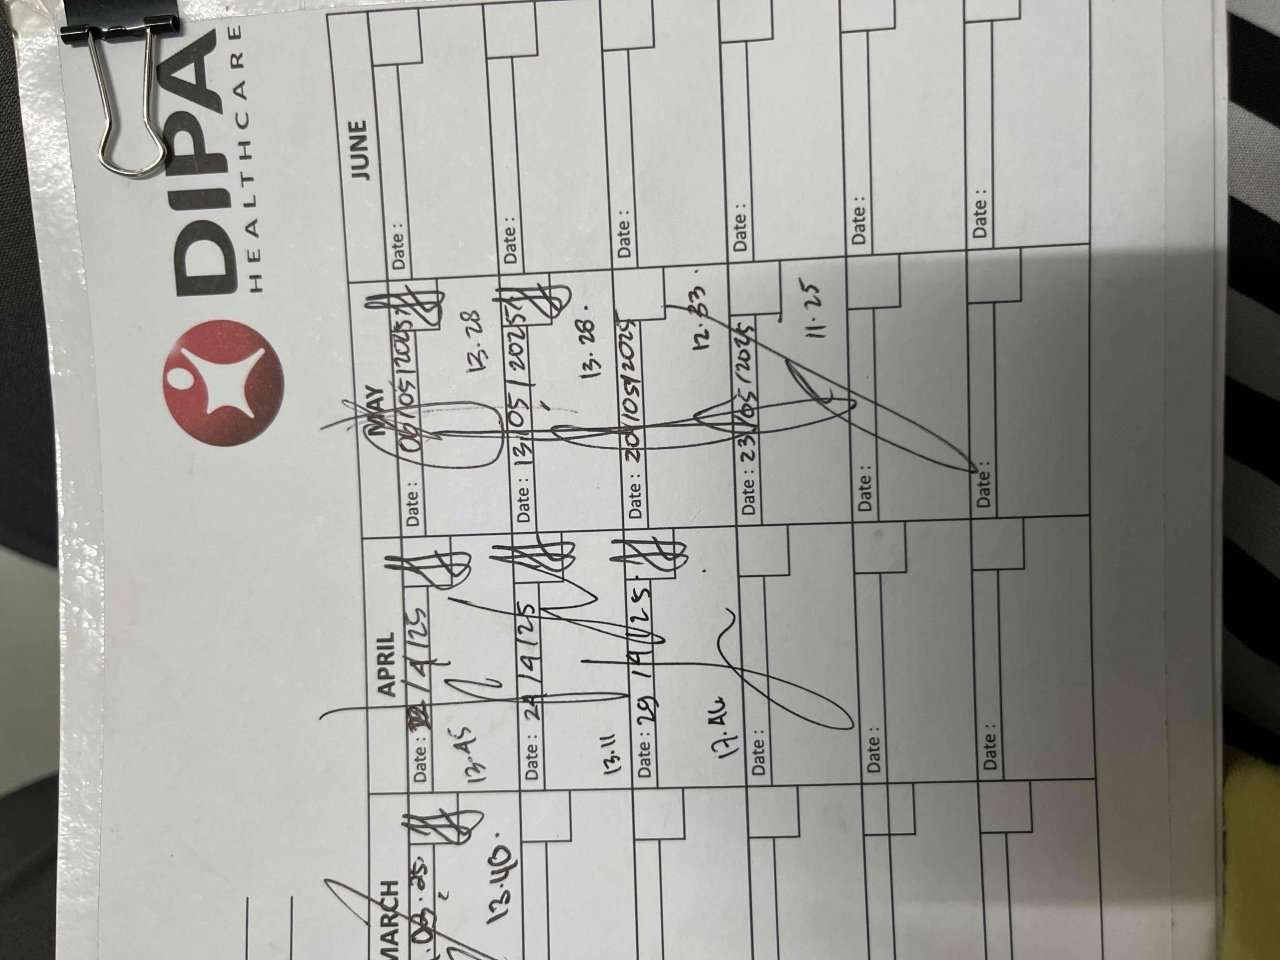 DIPA
HEALTHCARE
MARCH APRIL MAY JUNE
.03.25.
13.40.
Date : /4/25
13.45
Date : 24/4/25
13.11
Date : 29/4/25.
Date :
Date :
Date :
Date : 06/05/2025
13.28
Date : 13/05/2025
13.28.
Date : 20/05/2025
12.33.
Date : 23/05/2025
11.25
Date :
Date :
Date :
Date :
Date :
Date :
Date :
Date :